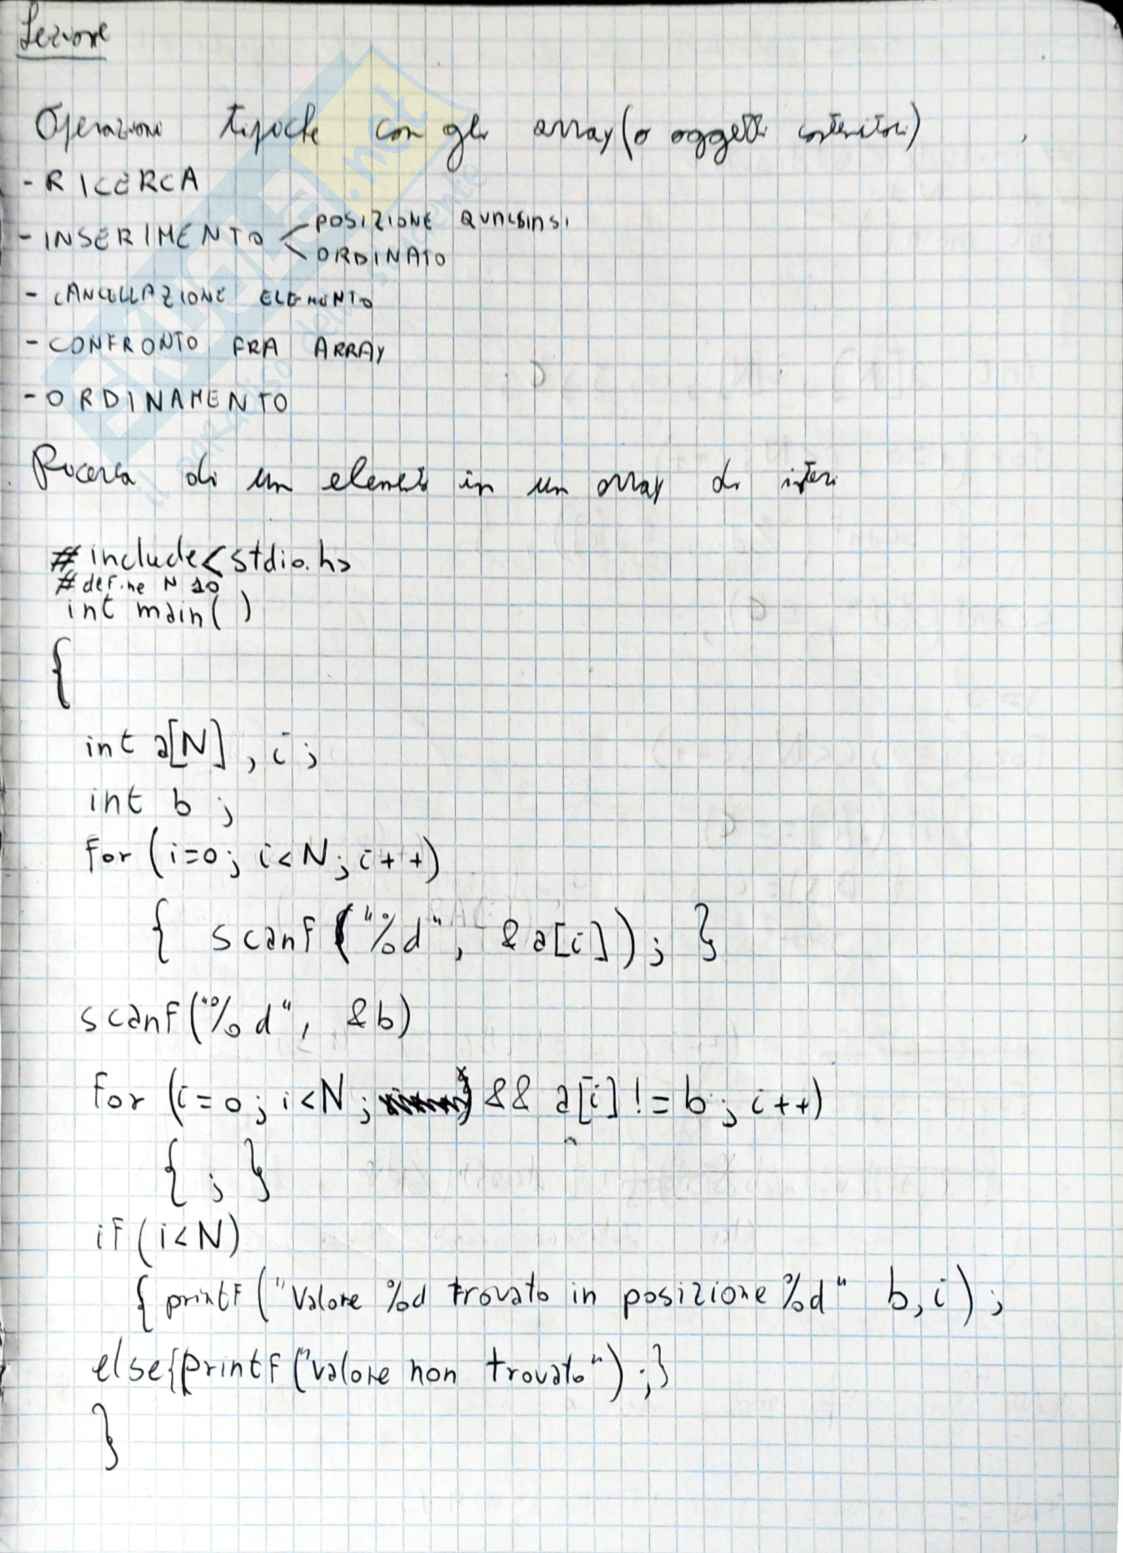 Lezione
Operazioni tipiche con gli array (o oggetti contenitori)
- RICERCA
- INSERIMENTO < POSIZIONE QUALSIASI
ORDINATO
- CANCELLAZIONE ELEMENTO
- CONFRONTO FRA ARRAY
- ORDINAMENTO
Ricerca di un elemento in un array di interi
#include<stdio.h>
#define N 10
int main( )
{
int a[N], i;
int b;
for (i=0; i<N; i++)
{ scanf ("%d", &a[i]); }
scanf("%d", &b)
for (i=0; i<N; && a[i] != b; i++)
{ ; }
if (i<N)
{ printf ("Valore %d trovato in posizione %d" b, i);
else{printf ("valore non trovato");}
}
SKUOLA.net
il paradiso dello studente